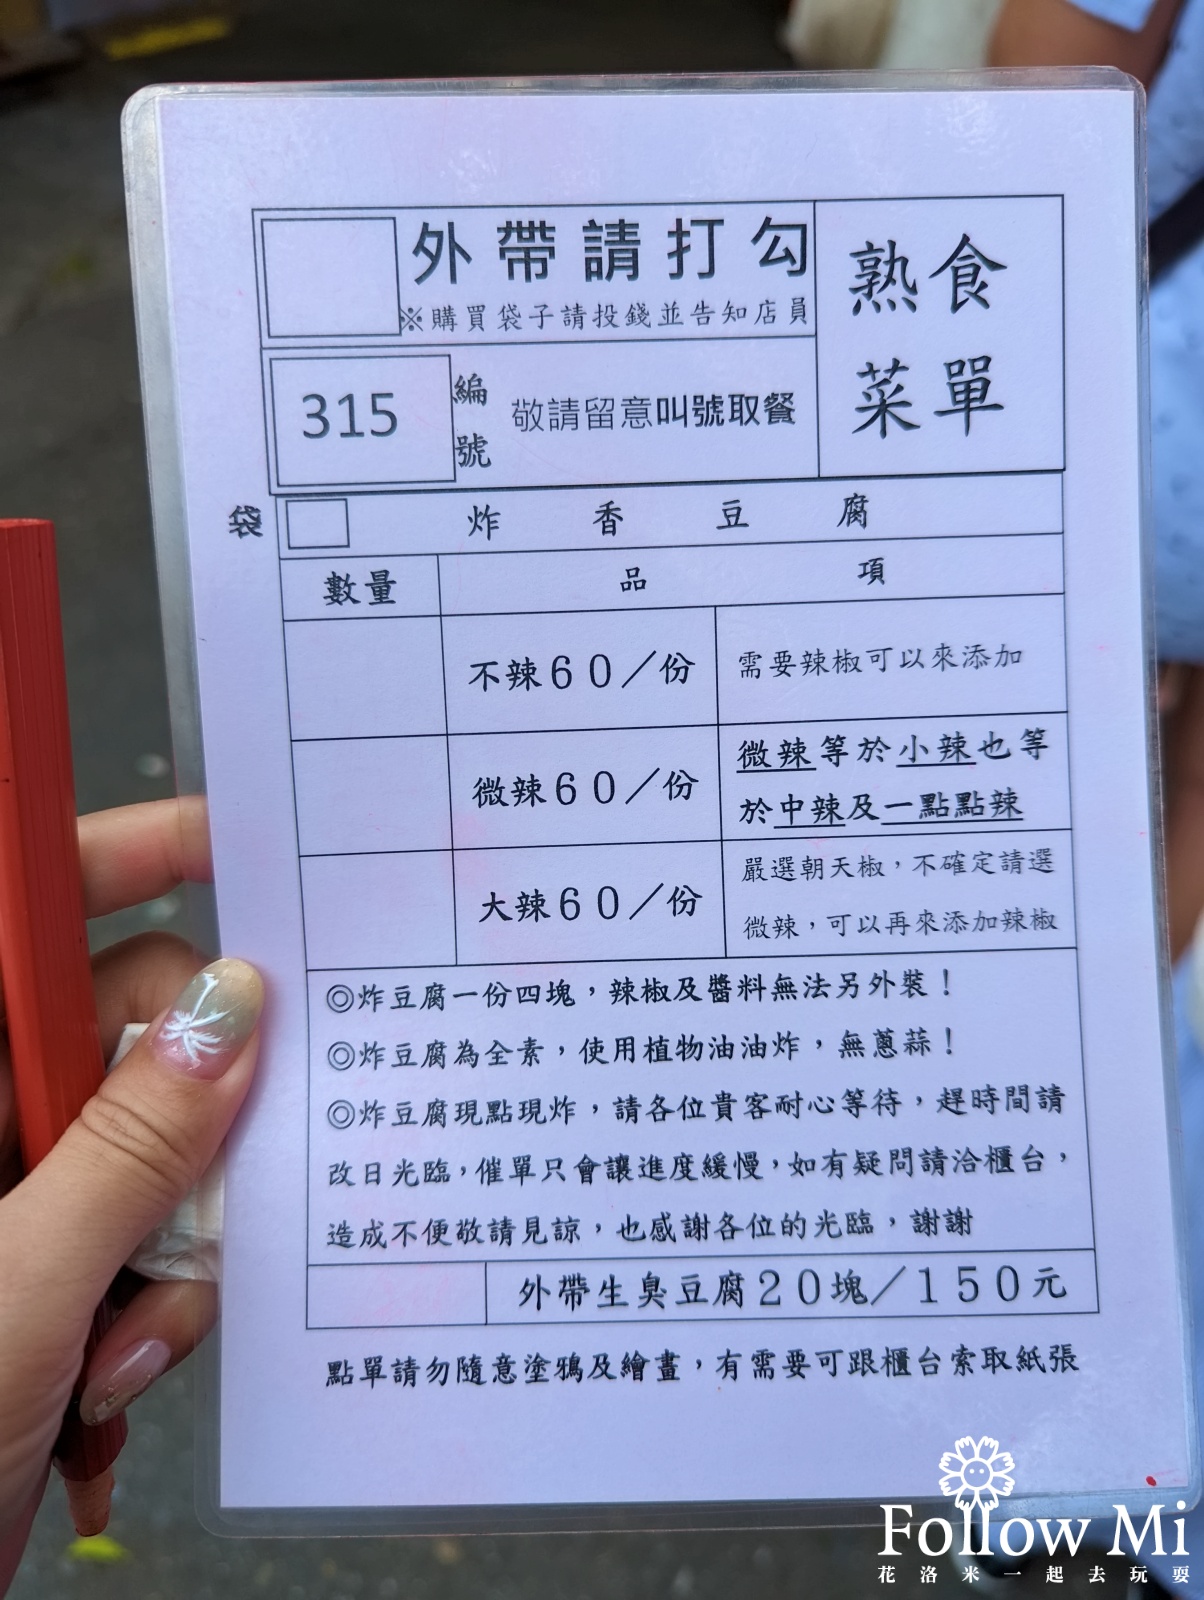 外帶請打勾
※購買袋子請投錢並告知店員
熟食
菜單
315
編號
敬請留意叫號取餐
袋
炸香豆腐
數量
品項
不辣60/份
需要辣椒可以來添加
微辣60/份
微辣等於小辣也等
於中辣及一點點辣
大辣60/份
嚴選朝天椒,不確定請選
微辣,可以再來添加辣椒
◎炸豆腐一份四塊,辣椒及醬料無法另外裝!
◎炸豆腐為全素,使用植物油油炸,無蔥蒜!
◎炸豆腐現點現炸,請各位貴客耐心等待,趕時間請
改日光臨,催單只會讓進度緩慢,如有疑問請洽櫃台,
造成不便敬請見諒,也感謝各位的光臨,謝謝
外帶生臭豆腐20塊/150元
點單請勿隨意塗鴉及繪畫,有需要可跟櫃台索取紙張
Follow Mi
花洛米一起去玩耍